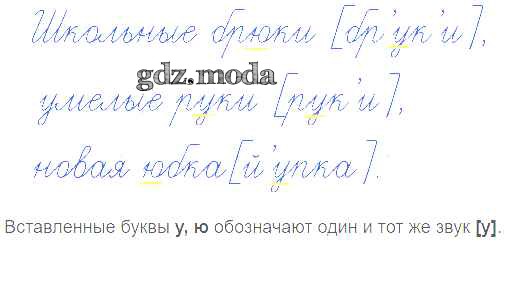 Школьные брюки [бр'ук'и],
gdz.moda
умелые руки [рук'и],
новая юбка [й'упка].
Вставленные буквы у, ю обозначают один и тот же звук [у].